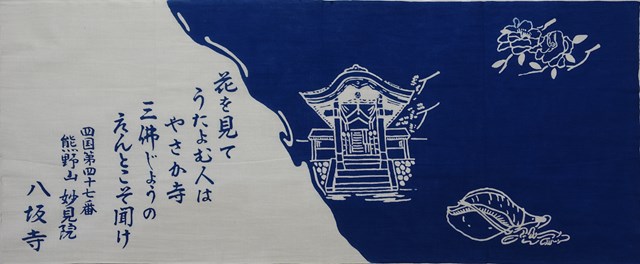 花を見て
うたよむ人は
やさか寺
三佛じょうの
えんとこそ聞け
四国第四十七番
熊野山 妙見院
八坂寺